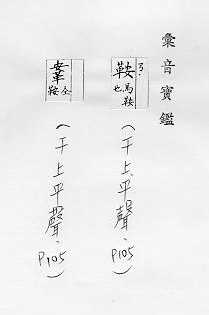 彙音寶鑑
鞍 馬鞍也
(干上平聲, P105)
鞌 仝鞍
(干上平聲, P105)